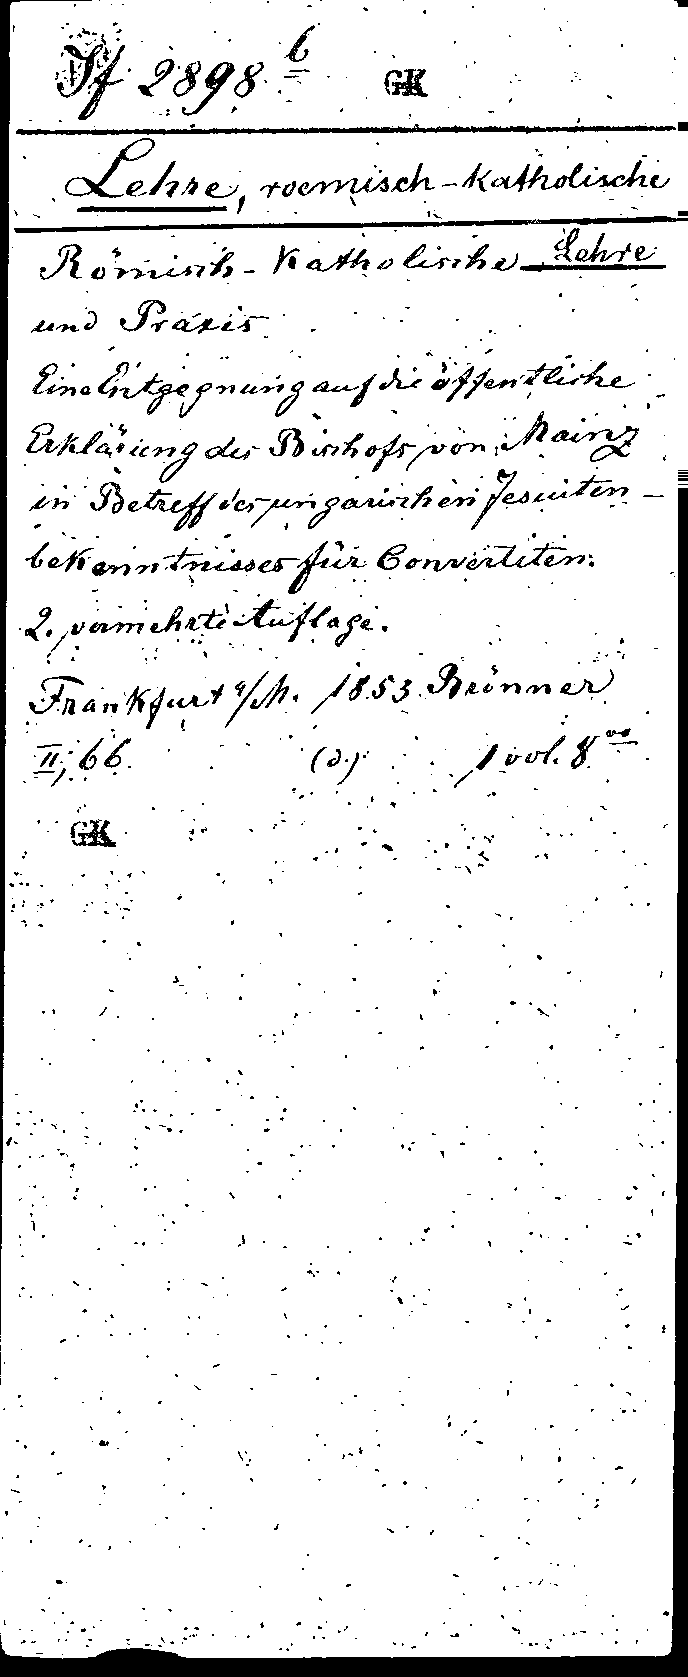 If 2898 b GK
Lehre, roemisch-katholische
Römisch-Katholische Lehre
und Praxis
Eine Entgegnung auf die öffentliche
Erklärung des Bischofs von Mainz
in Betreff des ungarischen Jesuiten-
bekenntnisses für Convertiten.
2. vermehrte Auflage.
Frankfurt a/M. 1853 Brönner
II; 66 (d.) 1 vol. 8vo
GK